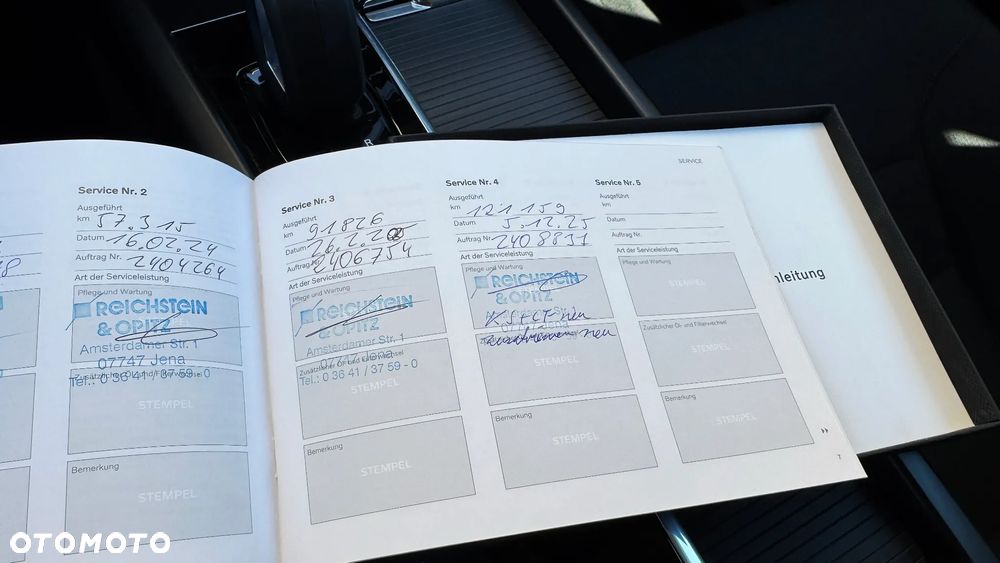 SERVICE
Service Nr. 2
Ausgeführt
km 57.315
Datum 16.02.24
Auftrag Nr. 2404264
Art der Serviceleistung
Pflege und Wartung
REICHSTEIN
& OPITZ
Amsterdamer Str. 1
07747 Jena
Zusätzlicher Öl- und Filterwechsel
Tel.: 0 36 41 / 37 59 - 0
STEMPEL
Bemerkung
STEMPEL
Service Nr. 3
Ausgeführt
km 91826
Datum 26.2.20
Auftrag Nr. 2406754
Art der Serviceleistung
Pflege und Wartung
REICHSTEIN
& OPITZ
Amsterdamer Str. 1
07747 Jena
Zusätzlicher Öl- und Filterwechsel
Tel.: 0 36 41 / 37 59 - 0
STEMPEL
Bemerkung
STEMPEL
Service Nr. 4
Ausgeführt
km 121 159
Datum 5.12.25
Auftrag Nr. 2408831
Art der Serviceleistung
Pflege und Wartung
REICHSTEIN
& OPITZ
neu
neu
STEMPEL
Bemerkung
STEMPEL
Service Nr. 5
Ausgeführt
km
Datum
Auftrag Nr.
Art der Serviceleistung
Pflege und Wartung
STEMPEL
Zusätzlicher Öl- und Filterwechsel
STEMPEL
Bemerkung
STEMPEL
7
nleitung
R
OTOMOTO